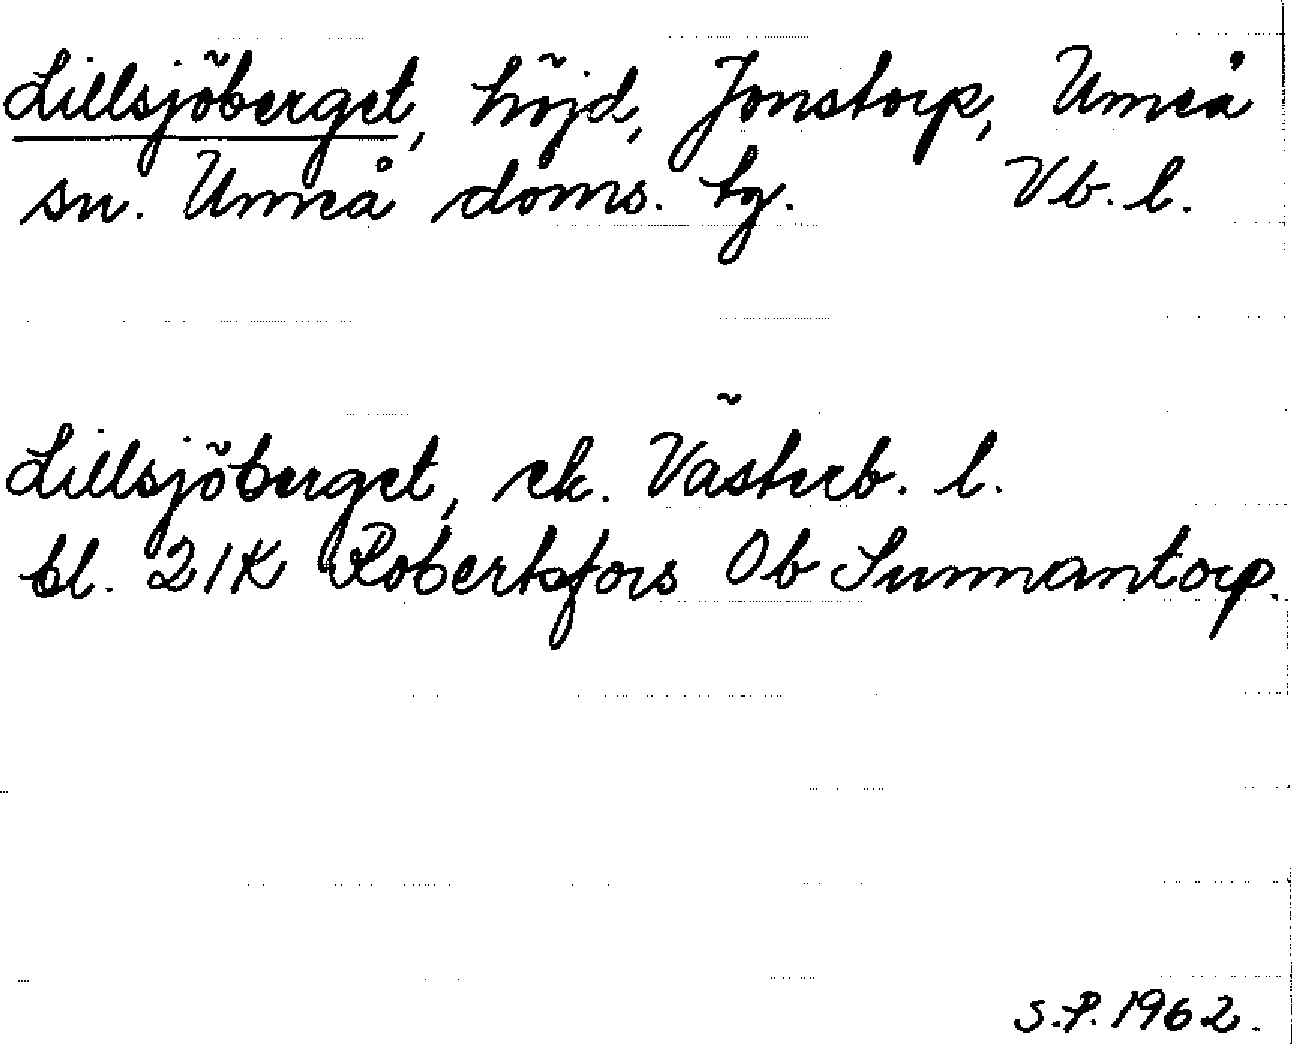 Lillsjöberget, höjd, Jonstorp, Umeå
sn. Umeå doms. tg. Vb. l.
Lillsjöberget, ek. Västerb. l.
bl. 21K Robertsfors Ob Sunnantorp.
S.P. 1962.